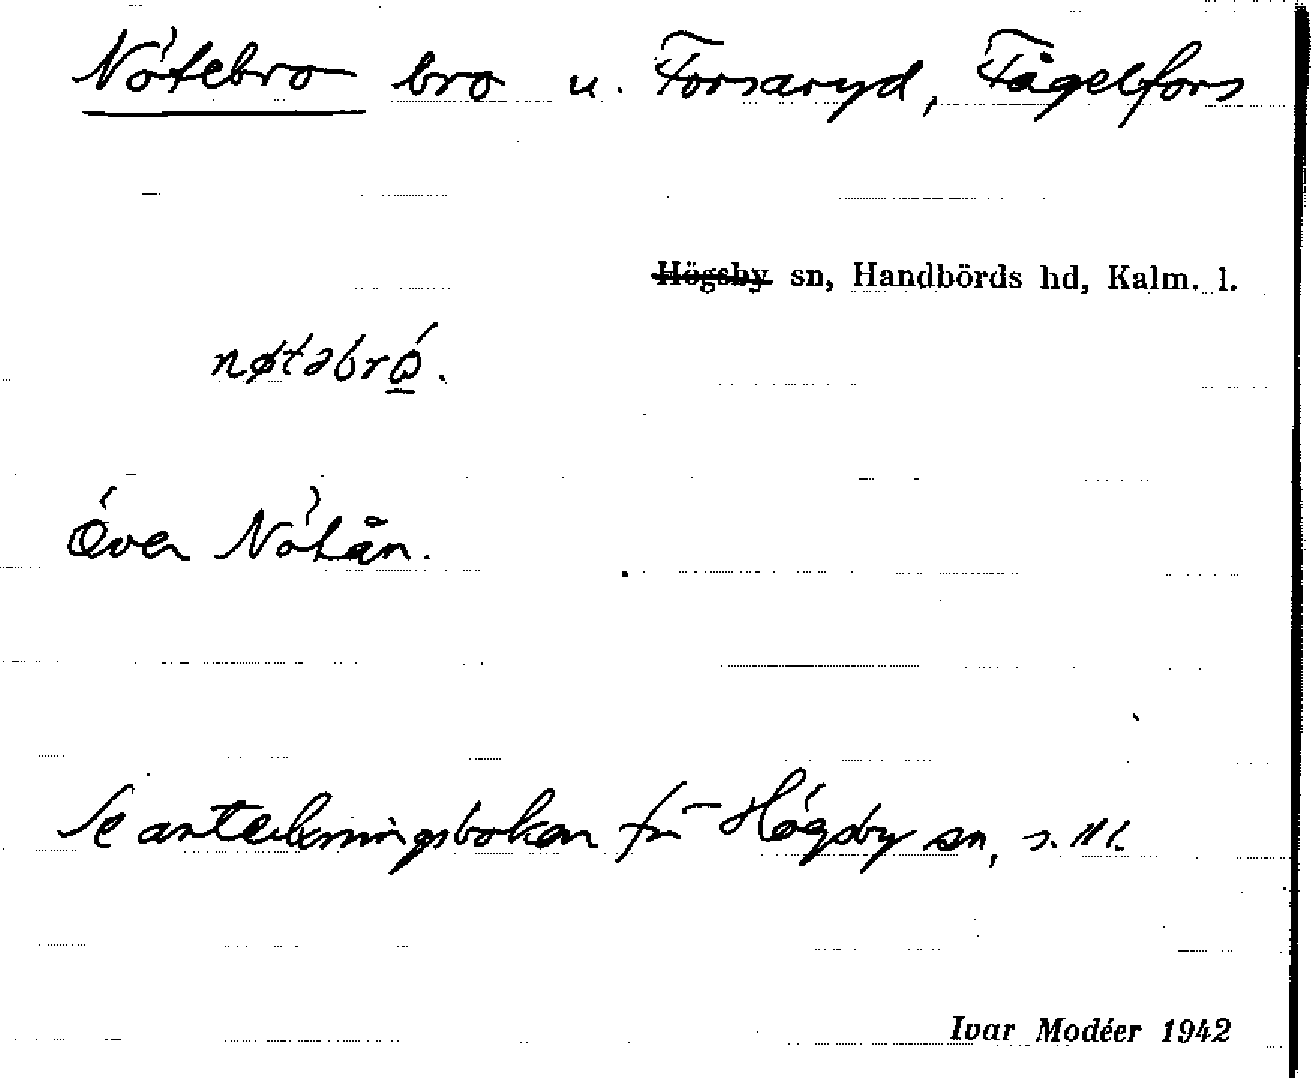 Nötebro bro u. Forsaryd, Fågelfors
Högsby sn, Handbörds hd, Kalm. l.
nøtəbró̱.
Över Nötån.
Se anteckningsboken för Högsby sn, s. 111.
Ivar Modéer 1942